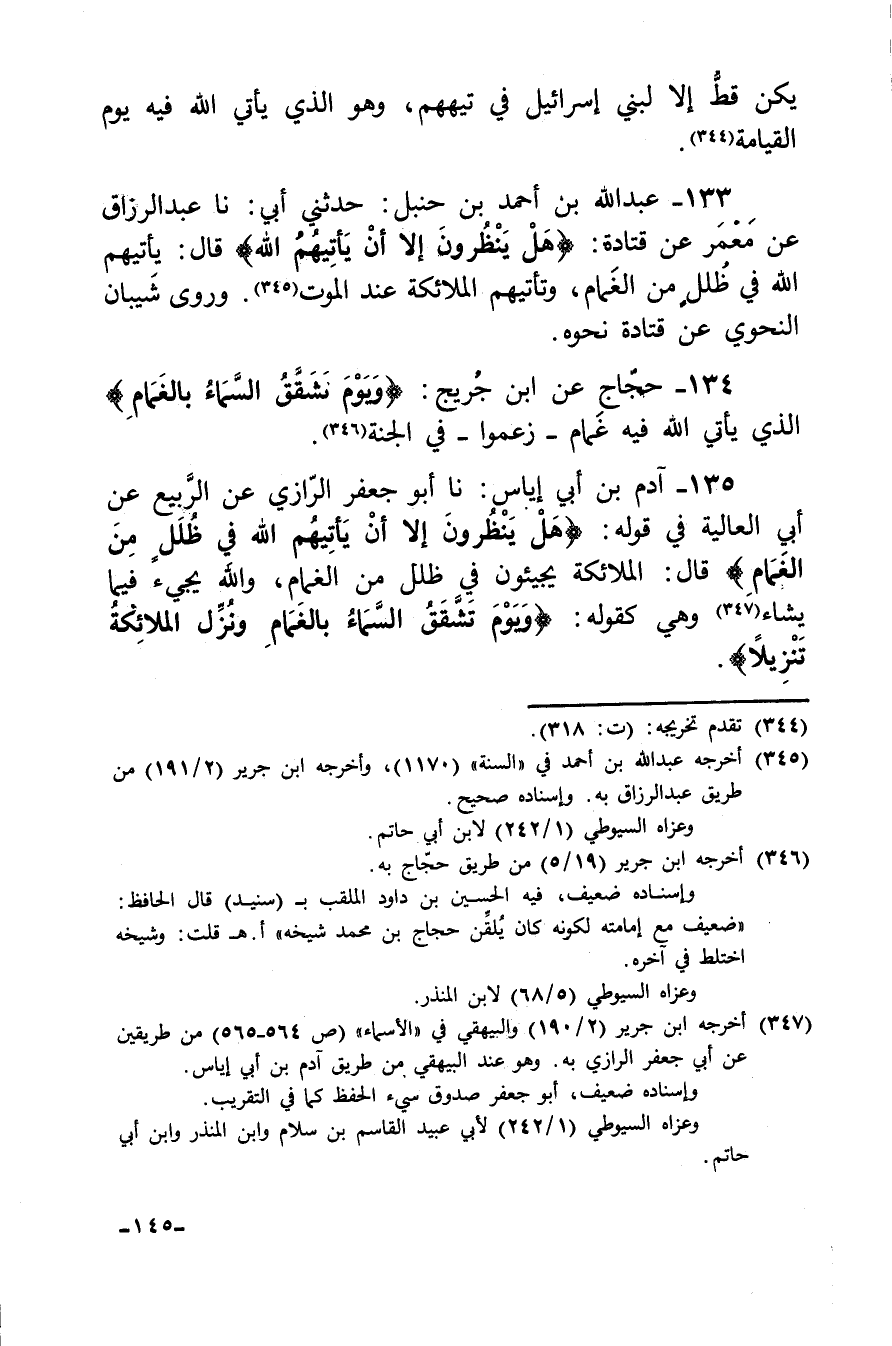 يكن قطُّ إلا لبني إسرائيل في تيههم، وهو الذي يأتي الله فيه يوم
القيامة(٣٤٤).
١٣٣ـ عبدالله بن أحمد بن حنبل: حدثني أبي: نا عبدالرزاق
عن مَعْمَر عن قتادة: ﴿هَلْ يَنْظُرونَ إلا أنْ يَأتِيهُمُ الله﴾ قال: يأتيهم
الله في ظُللٍ من الغَمام، وتأتيهم الملائكة عند الموت(٣٤٥). وروى شَيبان
النحوي عن قتادة نحوه.
١٣٤ـ حجّاج عن ابن جُريج: ﴿وَيَوْمَ نَشَقَّقُ السَّمَاءُ بالغَمَامِ﴾
الذي يأتي الله فيه غَمام ـ زعموا ـ في الجنة(٣٤٦).
١٣٥ـ آدم بن أبي إياس: نا أبو جعفر الرّازي عن الرَّبيع عن
أبي العالية في قوله: ﴿هَلْ يَنْظُرونَ إلا أنْ يَأتِيهُم الله في ظُلَلٍ مِنَ
الغَمَامِ﴾ قال: الملائكة يجيئون في ظلل من الغمام، والله يجيء فيما
يشاء(٣٤٧) وهي كقوله: ﴿وَيَوْمَ تَشَّقَقُ السَّمَاءُ بالغَمَامِ ونُزِّل الملائِكةُ
تَنْزِيلاً﴾.
(٣٤٤) تقدم تخريجه: (ت: ٣١٨).
(٣٤٥) أخرجه عبدالله بن أحمد في «السنة» (١١٧٠)، وأخرجه ابن جرير (١٩١/٢) من
طريق عبدالرزاق به. وإسناده صحيح.
وعزاه السيوطي (٢٤٢/١) لابن أبي حاتم.
(٣٤٦) أخرجه ابن جرير (٥/١٩) من طريق حجّاج به.
وإسناده ضعيف، فيه الحسين بن داود الملقب بـ (سنيد) قال الحافظ:
«ضعيف مع إمامته لكونه كان يُلقِّن حجاج بن محمد شيخه» أ.هـ قلت: وشيخه
اختلط في آخره.
وعزاه السيوطي (٦٨/٥) لابن المنذر.
(٣٤٧) أخرجه ابن جرير (١٩٠/٢) والبيهقي في «الأسماء» (ص ٥٦٤ـ٥٦٥) من طريقين
عن أبي جعفر الرازي به. وهو عند البيهقي من طريق آدم بن أبي إياس.
وإسناده ضعيف، أبو جعفر صدوق سيء الحفظ كما في التقريب.
وعزاه السيوطي (٢٤٢/١) لأبي عبيد القاسم بن سلام وابن المنذر وابن أبي
حاتم.
ـ١٤٥ـ